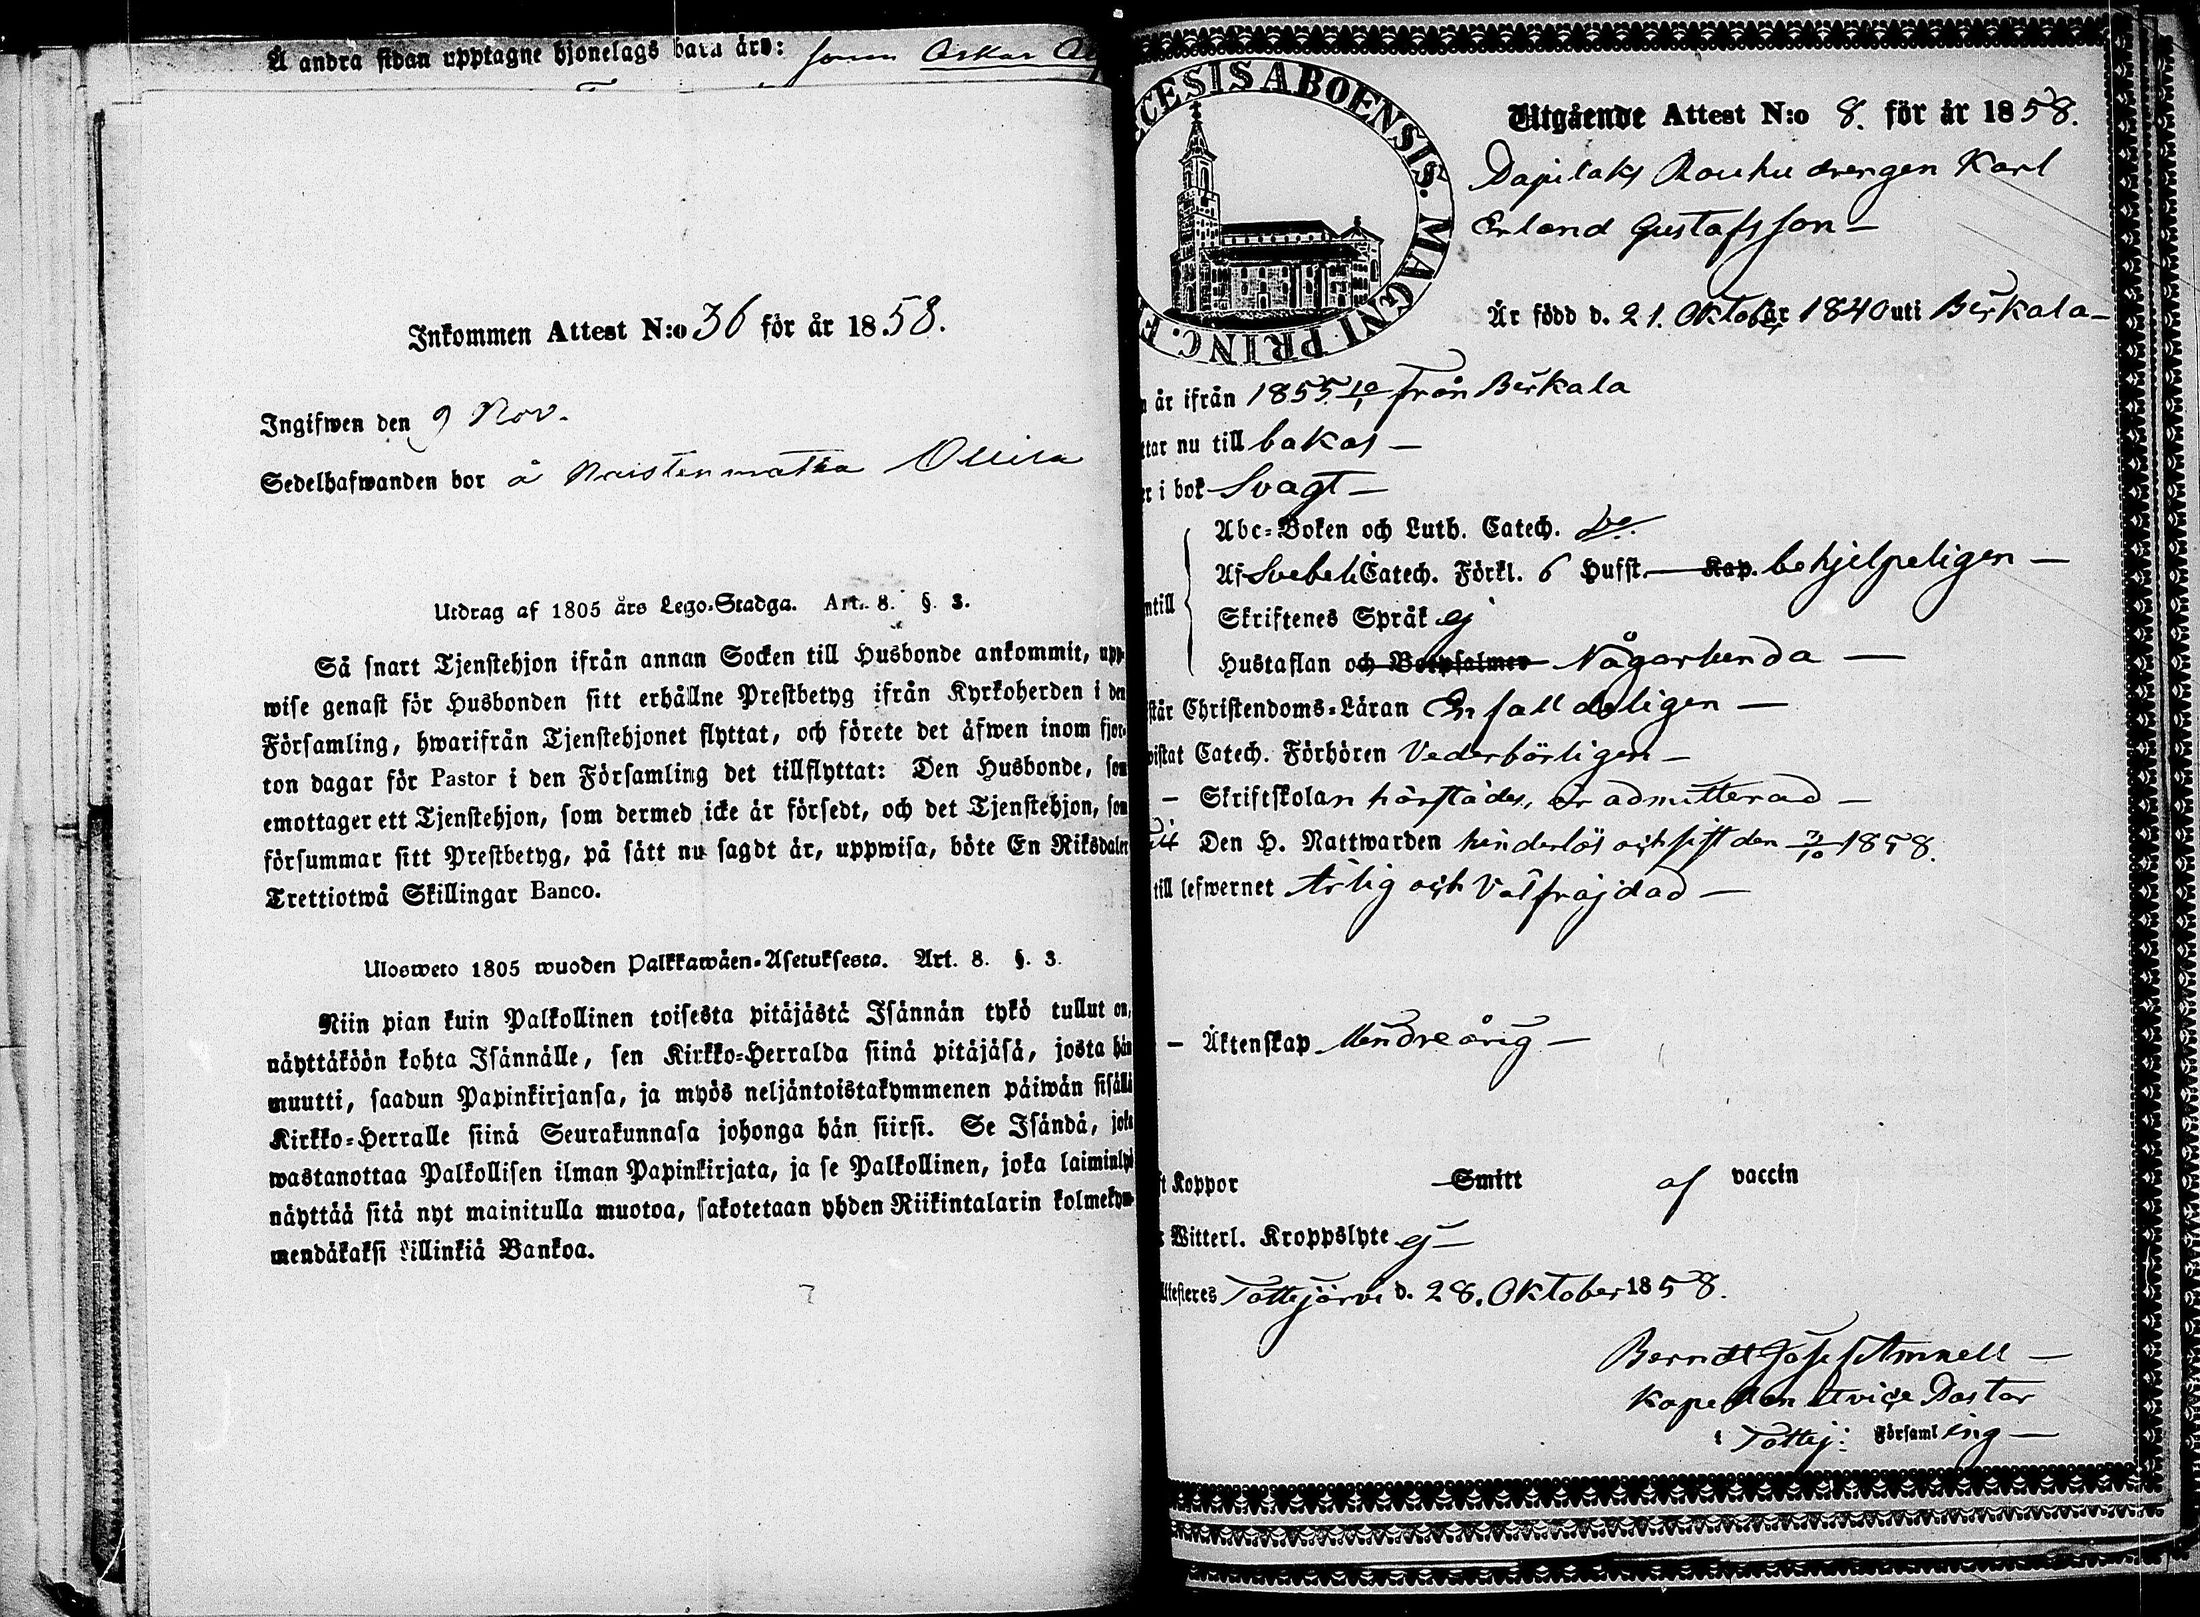 Å andra sidan upptagne hjonelags barn äro: sonen Oskar
Inkommen Attest N:o 36 för år 1858.
Ingifwen den 9 Nov.
Sedelhafwanden bor å Ollila
Utdrag af 1805 års Lego-Stadga. Art. 8. §. 3.
Så snart Tjenstehjon ifrån annan Socken till Husbonde ankommit, upp-
wise genast för Husbonden sitt erhållne Prestbetyg ifrån Kyrkoherden i den
Församling, hwarifrån Tjenstehjonet flyttat, och förete det äfwen inom fjor-
ton dagar för Pastor i den Församling det tillflyttat: Den Husbonde, som
emottager ett Tjenstehjon, som dermed icke är försedt, och det Tjenstehjon, som
försummar sitt Prestbetyg, på sätt nu sagdt är, uppwisa, böte En Riksdaler
Trettiotwå Skillingar Banco.
Ulosweto 1805 wuoden Palkkawäen-Asetuksesta. Art. 8. §. 3.
Niin pian kuin Palkollinen toisesta pitäjästä Isännän tykö tullut on,
näyttäköön kohta Isännälle, sen Kirkko-Herralda siinä pitäjäsä, josta hän
muutti, saadun Papinkirjansa, ja myös neljäntoistakymmenen päiwän sisällä
Kirkko-Herralle siinä Seurakunnasa johonga hän siirsi. Se Isändä, joka
wastanottaa Palkollisen ilman Papinkirjata, ja se Palkollinen, joka laiminlyö
näyttää sitä nyt mainitulla muotoa, sakotetaan yhden Riikintalarin kolmekym-
mendäkaksi killinkiä Bankoa.
CESIS ABOENSIS. MAGNI PRINC. F
Utgående Attest N:o 8. för år 1858.
Rauhu drengen Karl
Erland Gustafsson
Är född d. 21. Oktober 1840 uti Birkala
är ifrån 1855 10/1 från Birkala
ttar nu till bakas
er i bok Svagt
Abc-Boken och Luth. Catech. do.
Af Svebeli Catech. Förkl. 6 Hufst. Kap. behjelpeligen
ntill Skriftenes Språk ej
Hustaflan och Botpsalmer Någorlunda
står Christendoms-Läran Enfalldeligen
vistat Catech. Förhören Vederbörligen
Skriftskolan härstädes, är admitterad
Den H. Nattwarden hinderlös och sist den 3/10 1858.
till lefwernet Ärlig och Välfräjdad
Äktenskap Mindreårig
ft Koppor Smitt af vaccin
Witterl. Kroppslyte ej
Attesteres Tottijärvi d. 28. Oktober 1858.
Berndt Josef Amnell
Kapellan Pastor
i Tottij: Församling